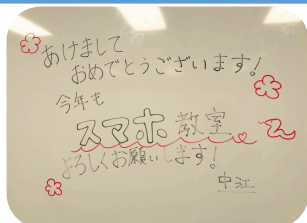 あけまして
おめでとうございます!
今年も
スマホ教室
よろしくお願いします!
中江